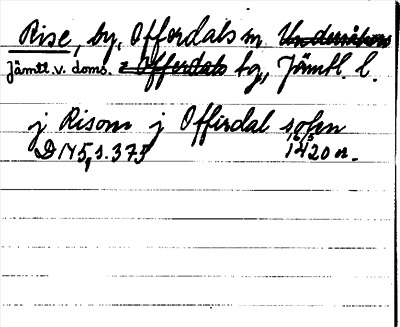 Rise, by, Offerdals sn Undersåkers
Jämtl. v. doms. Offerdals tg, Jämtl. l.
j Risom j Offirdal sokn
DN 5, s. 375 16/5 1420 or.